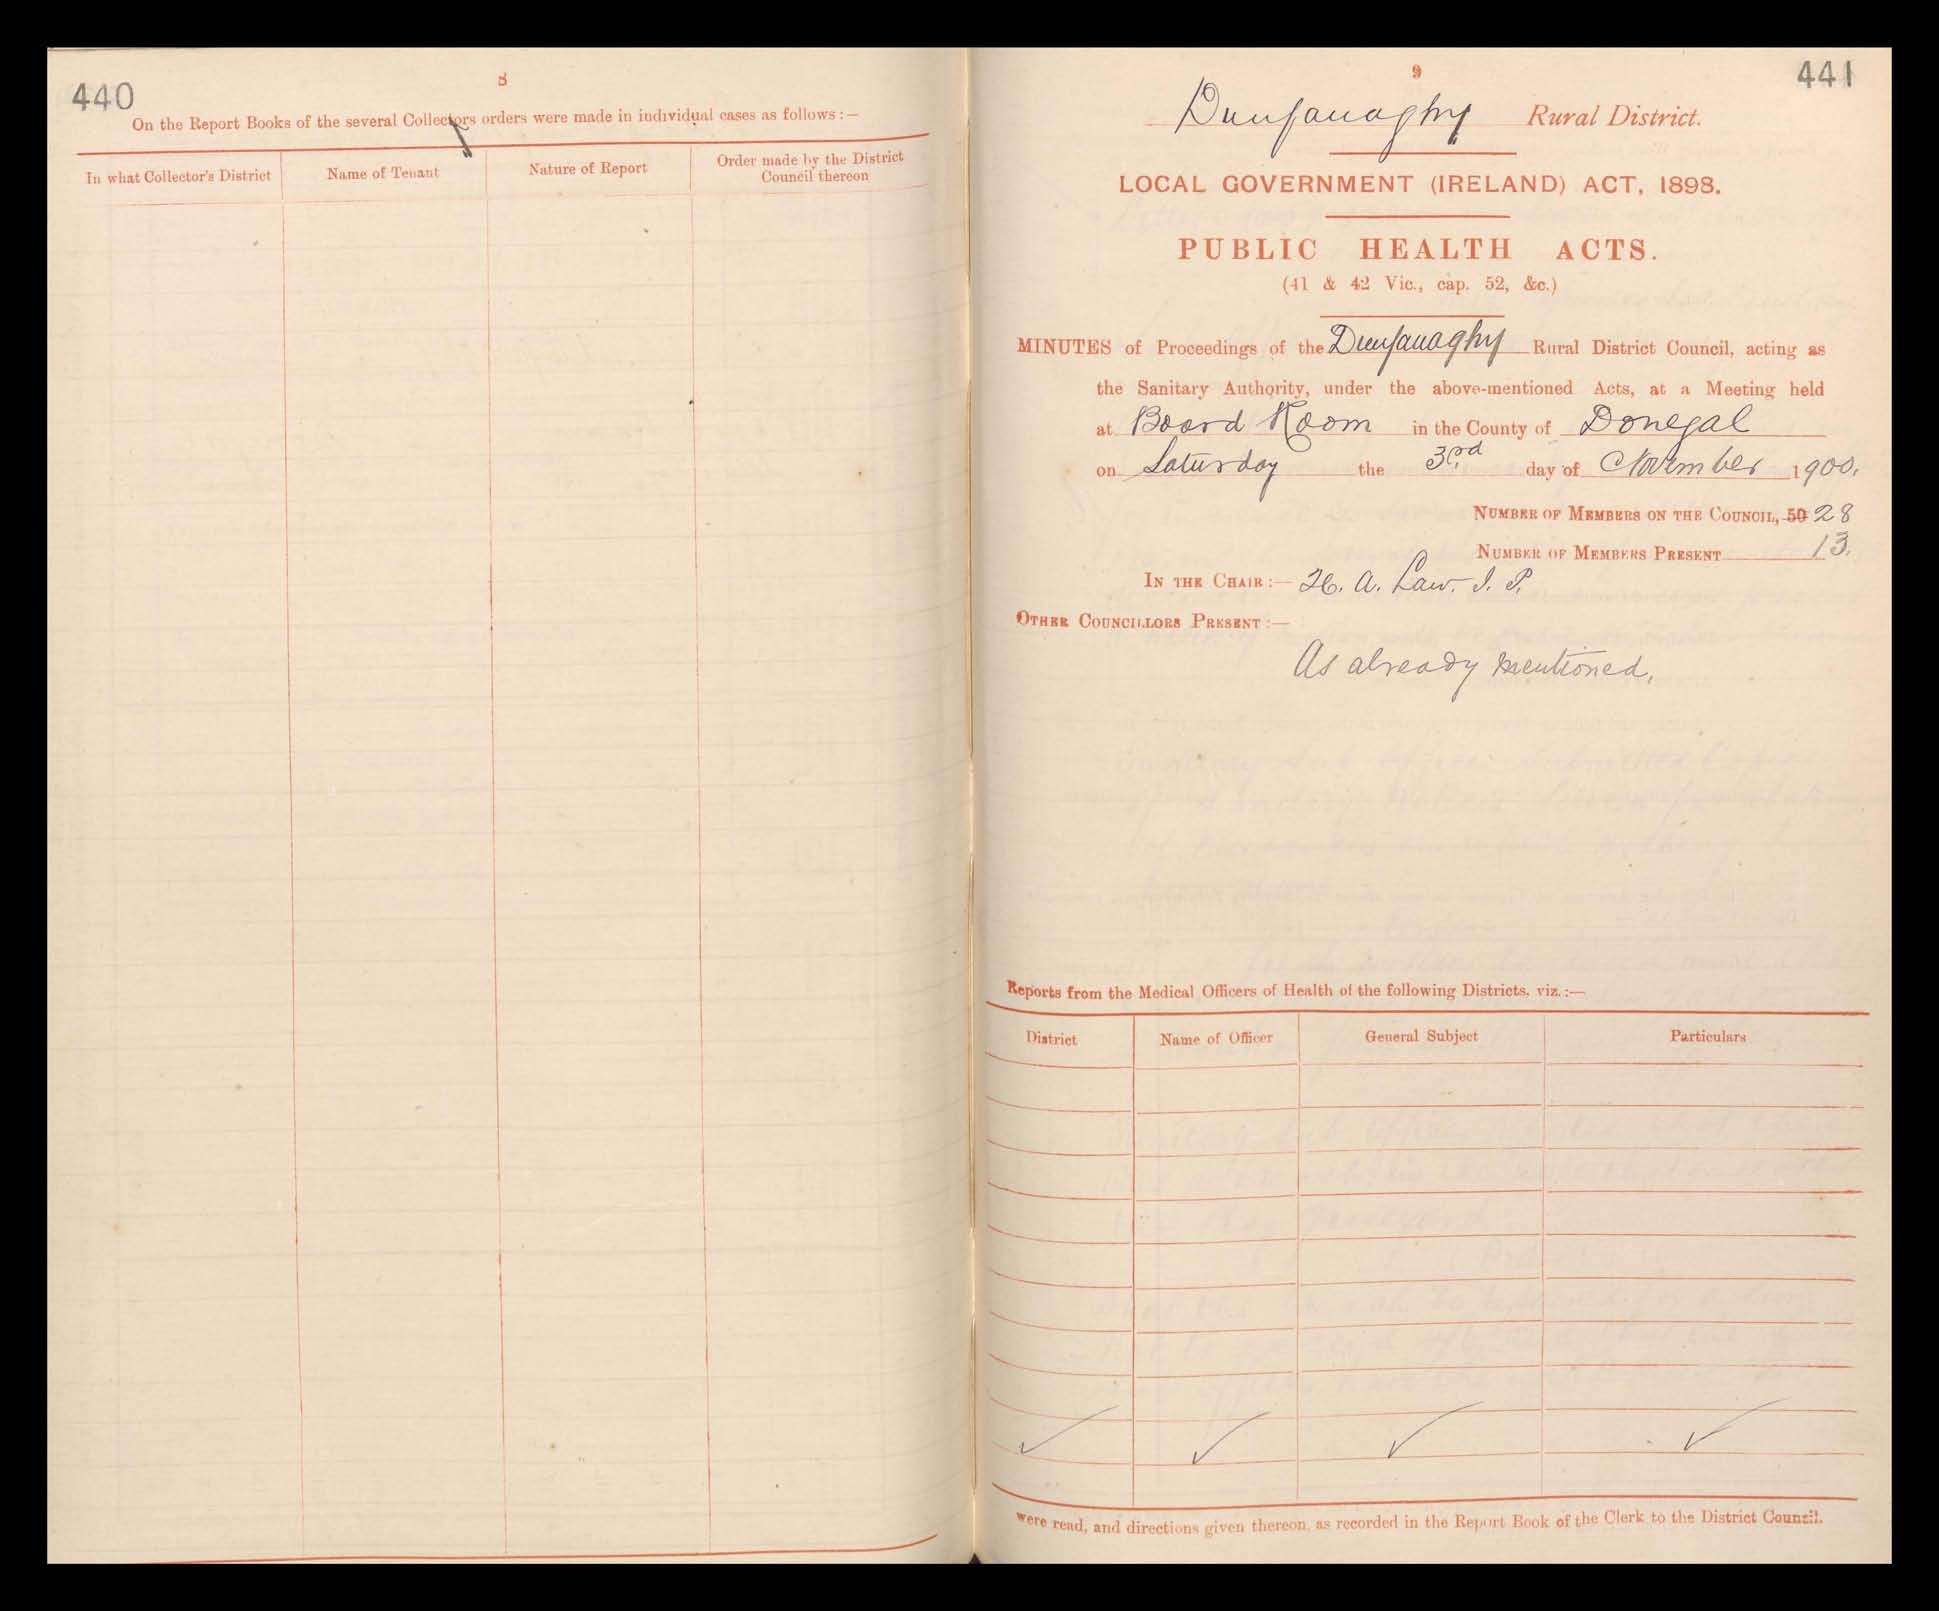 440
8
On the Report Books of the several Collectors orders were made in individual cases as follows :—
In what Collector's District
Name of Tenant
Nature of Report
Order made by the District
Council thereon
441
9
Dunfanaghy Rural District.
LOCAL GOVERNMENT (IRELAND) ACT, 1898.
PUBLIC HEALTH ACTS.
(41 & 42 Vic., cap. 52, &c.)
MINUTES of Proceedings of the Dunfanaghy Rural District Council, acting as
the Sanitary Authority, under the above-mentioned Acts, at a Meeting held
at Board Room in the County of Donegal
on Saturday the 3rd day of November 1900.
NUMBER OF MEMBERS ON THE COUNCIL, 50 28
NUMBER OF MEMBERS PRESENT 13.
IN THE CHAIR :— H. A. Law. J. P.
OTHER COUNCILLORS PRESENT :—
As already mentioned.
Reports from the Medical Officers of Health of the following Districts, viz. :—
District
Name of Officer
General Subject
Particulars
were read, and directions given thereon, as recorded in the Report Book of the Clerk to the District Council.